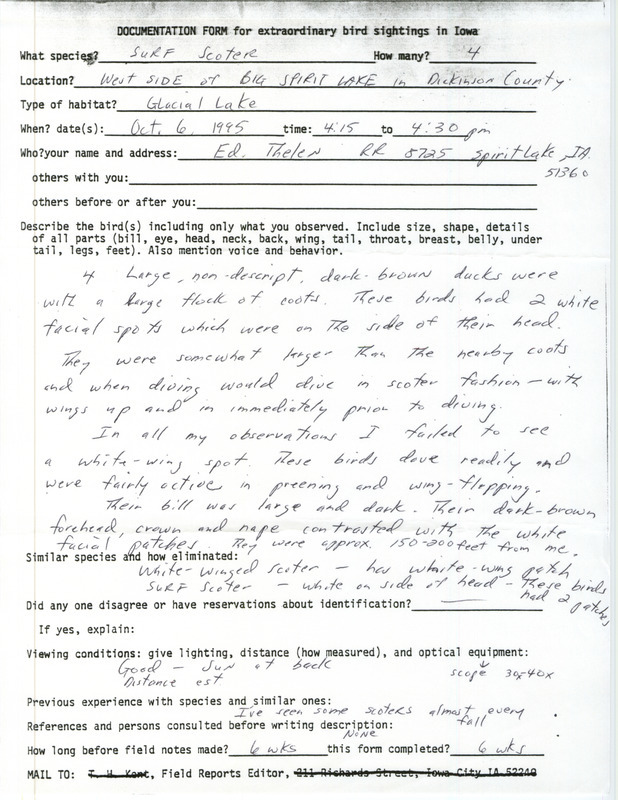 DOCUMENTATION FORM for extraordinary bird sightings in Iowa
What species? Surf Scoter How many? 4
Location? West side of Big Spirit Lake in Dickinson County.
Type of habitat? Glacial Lake
When? date(s): Oct. 6, 1995 time: 4:15 to 4:30 pm
Who?your name and address: Ed. Thelen RR 8725 Spirit Lake, IA.
51360
others with you:
others before or after you:
Describe the bird(s) including only what you observed. Include size, shape, details
of all parts (bill, eye, head, neck, back, wing, tail, throat, breast, belly, under
tail, legs, feet). Also mention voice and behavior.
4 Large, non-descript, dark-brown ducks were
with a large flock of coots. These birds had 2 white
facial spots which were on the side of their head.
They were somewhat larger than the nearby coots
and when diving would dive in scoter fashion - with
wings up and in immediately prior to diving.
In all my observations I failed to see
a white-wing spot. These birds dove readily and
were fairly active in preening and wing-flapping.
Their bill was large and dark. Their dark-brown
forehead, crown and nape contrasted with the white
facial patches. They were approx. 150-200 feet from me.
Similar species and how eliminated:
White-winged scoter - has white-wing patch
Surf Scoter - white on side of head - these birds
had 2 patches
Did any one disagree or have reservations about identification? —
If yes, explain:
Viewing conditions: give lighting, distance (how measured), and optical equipment:
Good - Sun at back
Distance est scope 30x-40x
Previous experience with species and similar ones:
I've seen some scoters almost every
fall
References and persons consulted before writing description:
None
How long before field notes made? 6 wks this form completed? 6 wks
MAIL TO: T. H. Kent, Field Reports Editor, 211 Richards Street, Iowa City IA 52240